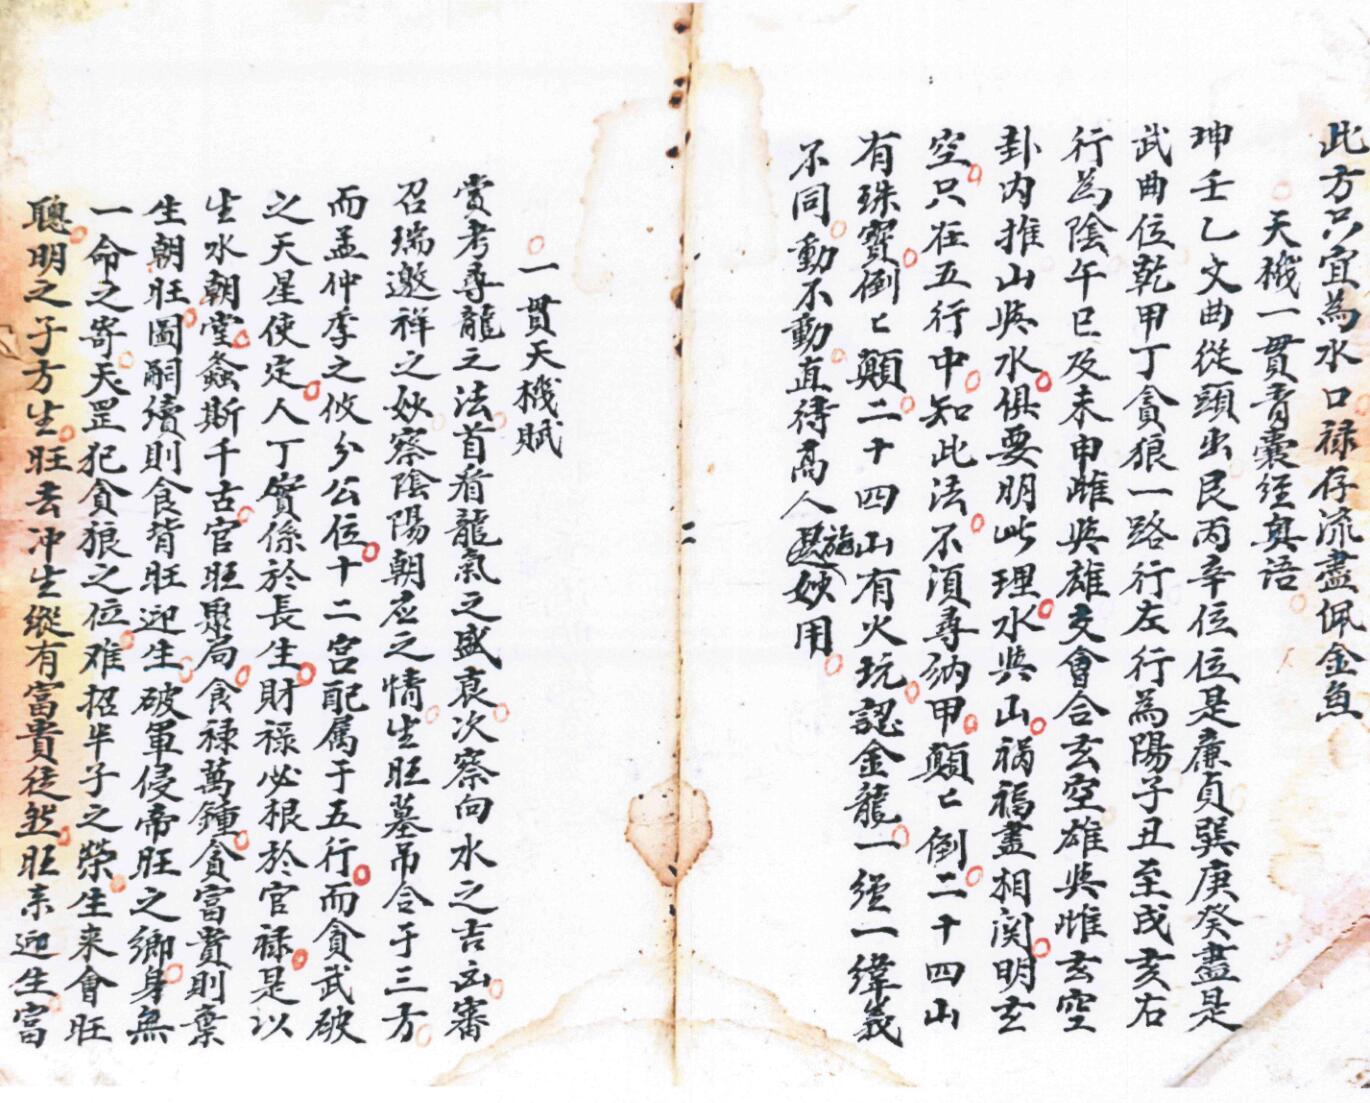 此方只宜為水口禄存流盡佩金魚
天機一貫青囊经奥语
坤壬乙文曲從頭出艮丙辛位位是廉貞巽庚癸盡是
武曲位乾甲丁貪狼一路行左行為陽子丑至戌亥右
行為陰午巳及未申雌與雄交會合玄空雄與雌玄空
卦内推山與水俱要明此理水與山祸福盡相関明玄
空只在五行中知此法不須尋纳甲顛亡倒二十四山
有珠寶倒亡顛二十四山有火玩認金龍一經一緯義
不同動不動直待高人施妙用
二
一貫天機賦
賞考尋龍之法首看龍氣之盛衰次察向水之吉凶審
召瑞邀祥之妙察陰陽朝应之情生旺墓吊合于三方
而孟仲季之攸分公位十二宫配属于五行而貪武破
之天星使定人丁實係於長生財禄必根於官禄是以
生水朝堂螽斯千古官旺聚局食禄萬鍾貪富貴則棄
生朝旺圖嗣續則食背旺迎生破軍侵帝旺之鄉身無
一命之寄天罡犯貪狼之位难招半子之榮生来會旺
聰明之子方生旺去冲生縱有富貴徒然旺来迎生富